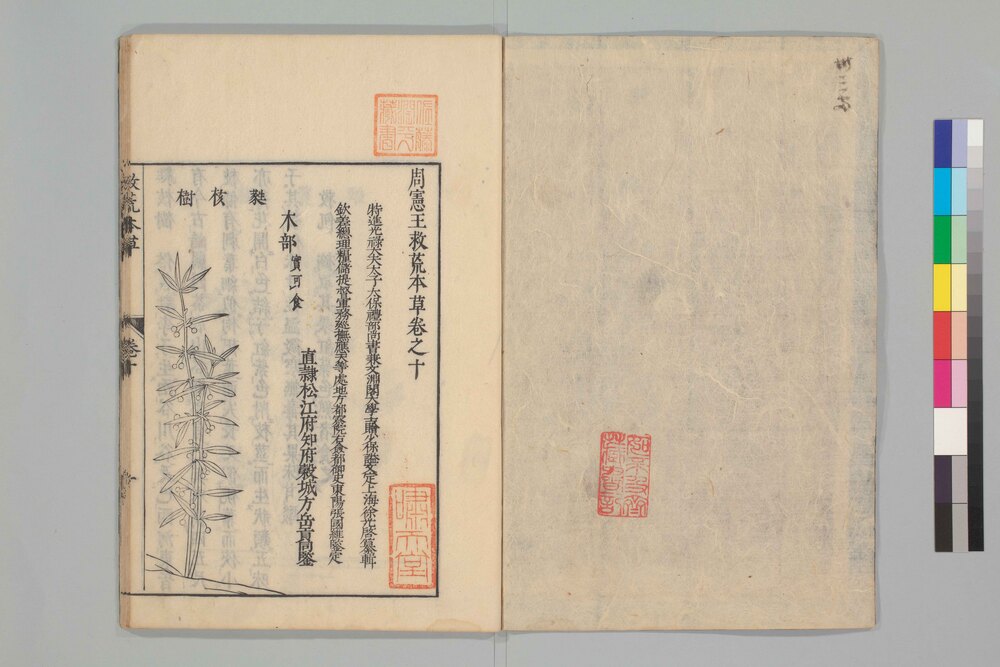 周憲王救荒本草卷之十
特進光祿大夫太子太保禮部尚書兼文淵閣大學士贈少保諡文定上海徐光啓纂輯
欽差總理糧儲提督軍務巡撫應天等處地方都察院右僉都御史東陽張國維鑒定
直隸松江府知府穀城方岳貢同鑒
木部 實可食
蕤核樹
救荒本草
卷十